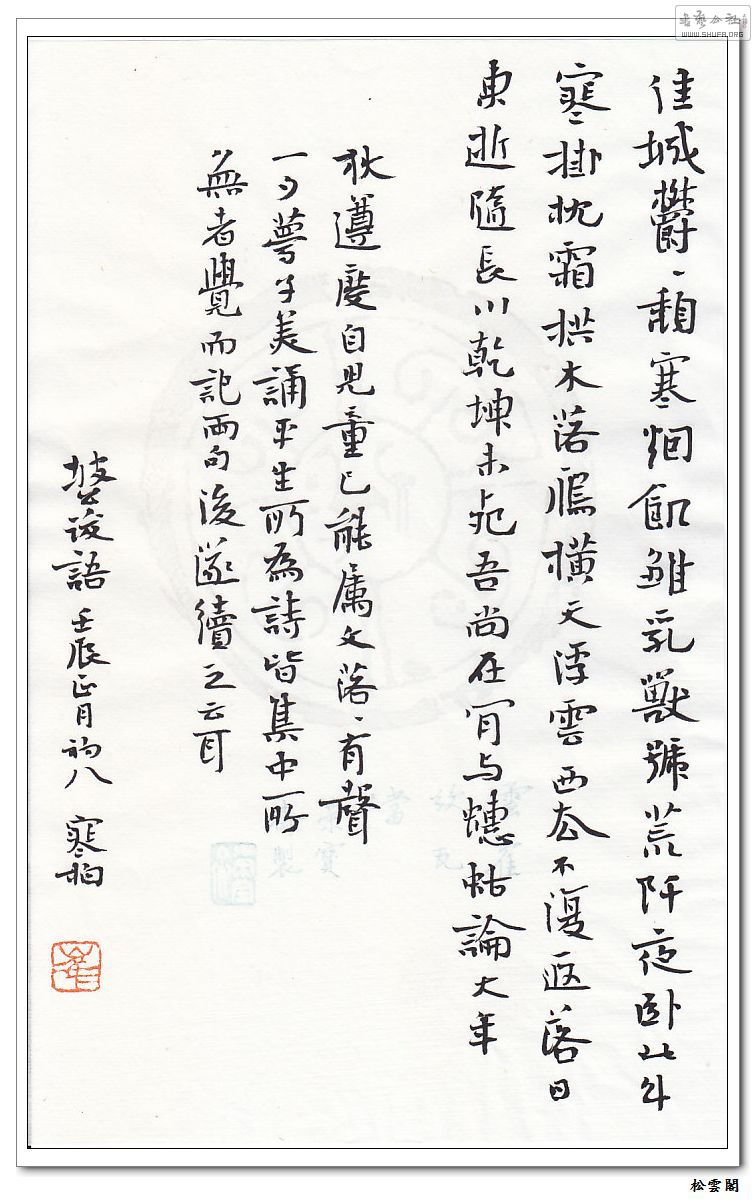 佳城鬱々頹寒烟飢雛乳獸號荒阡夜卧北斗
寒掛枕霜拱木落鴈橫天浮雲西去不復返落日
東逝隨長川乾坤未死吾尚在肯与蟪蛄論大年
狄遵度自兒童已能屬文落々有聲
一夕夢子美誦平生所為詩皆集中所
無者覺而記兩句後遂續之云耳
坡公語 壬辰正月初八 寒柏
書藝公社
WWW.SHUFA.ORG
松雲閣